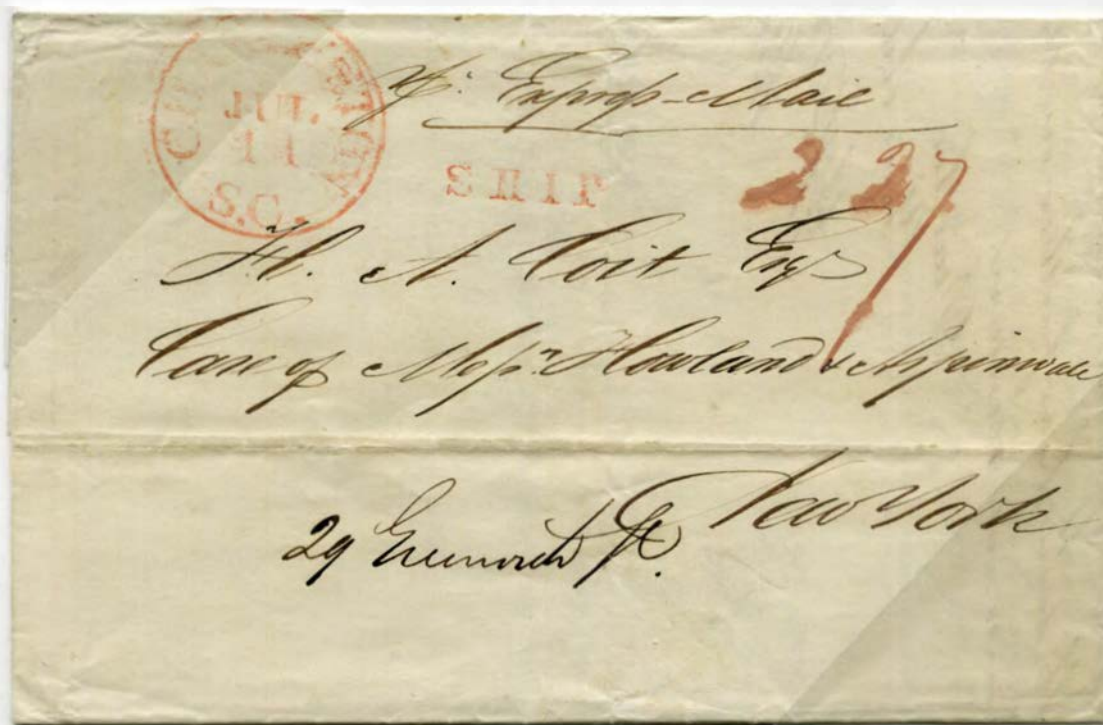 CHARLESTON
JUL.
11
S.C.
pr. Express-Mail
SHIP
227
H. A. Coit Esqr
Care of Messrs. Howland & Aspinwall
New York
29 Greenwich St.